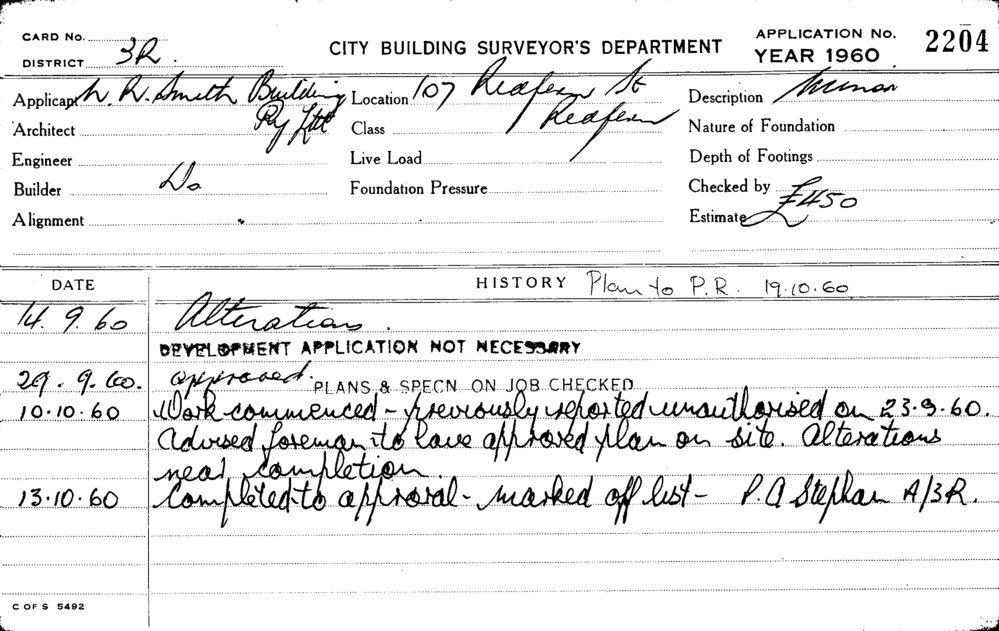 CARD No.
DISTRICT 3R
CITY BUILDING SURVEYOR'S DEPARTMENT
APPLICATION No. 2204
YEAR 1960
Applicant W. R. Smith Building
Pty Ltd
Location 107 Redfern St
Redfern
Description Minor
Architect
Class
Nature of Foundation
Engineer
Live Load
Depth of Footings
Builder Do
Foundation Pressure
Checked by
Alignment
Estimate £450
DATE
HISTORY Plan to P.R. 19.10.60
14.9.60 Alterations.
DEVELOPMENT APPLICATION NOT NECESSARY
29.9.60. approved. PLANS & SPECN ON JOB CHECKED
10.10.60 Work commenced - previously reported unauthorised on 23.9.60.
Advised foreman to have approved plan on site. Alterations
near completion.
13.10.60 Completed to approval - marked off list - P. A Stephan A/3R.
C OF S 5492